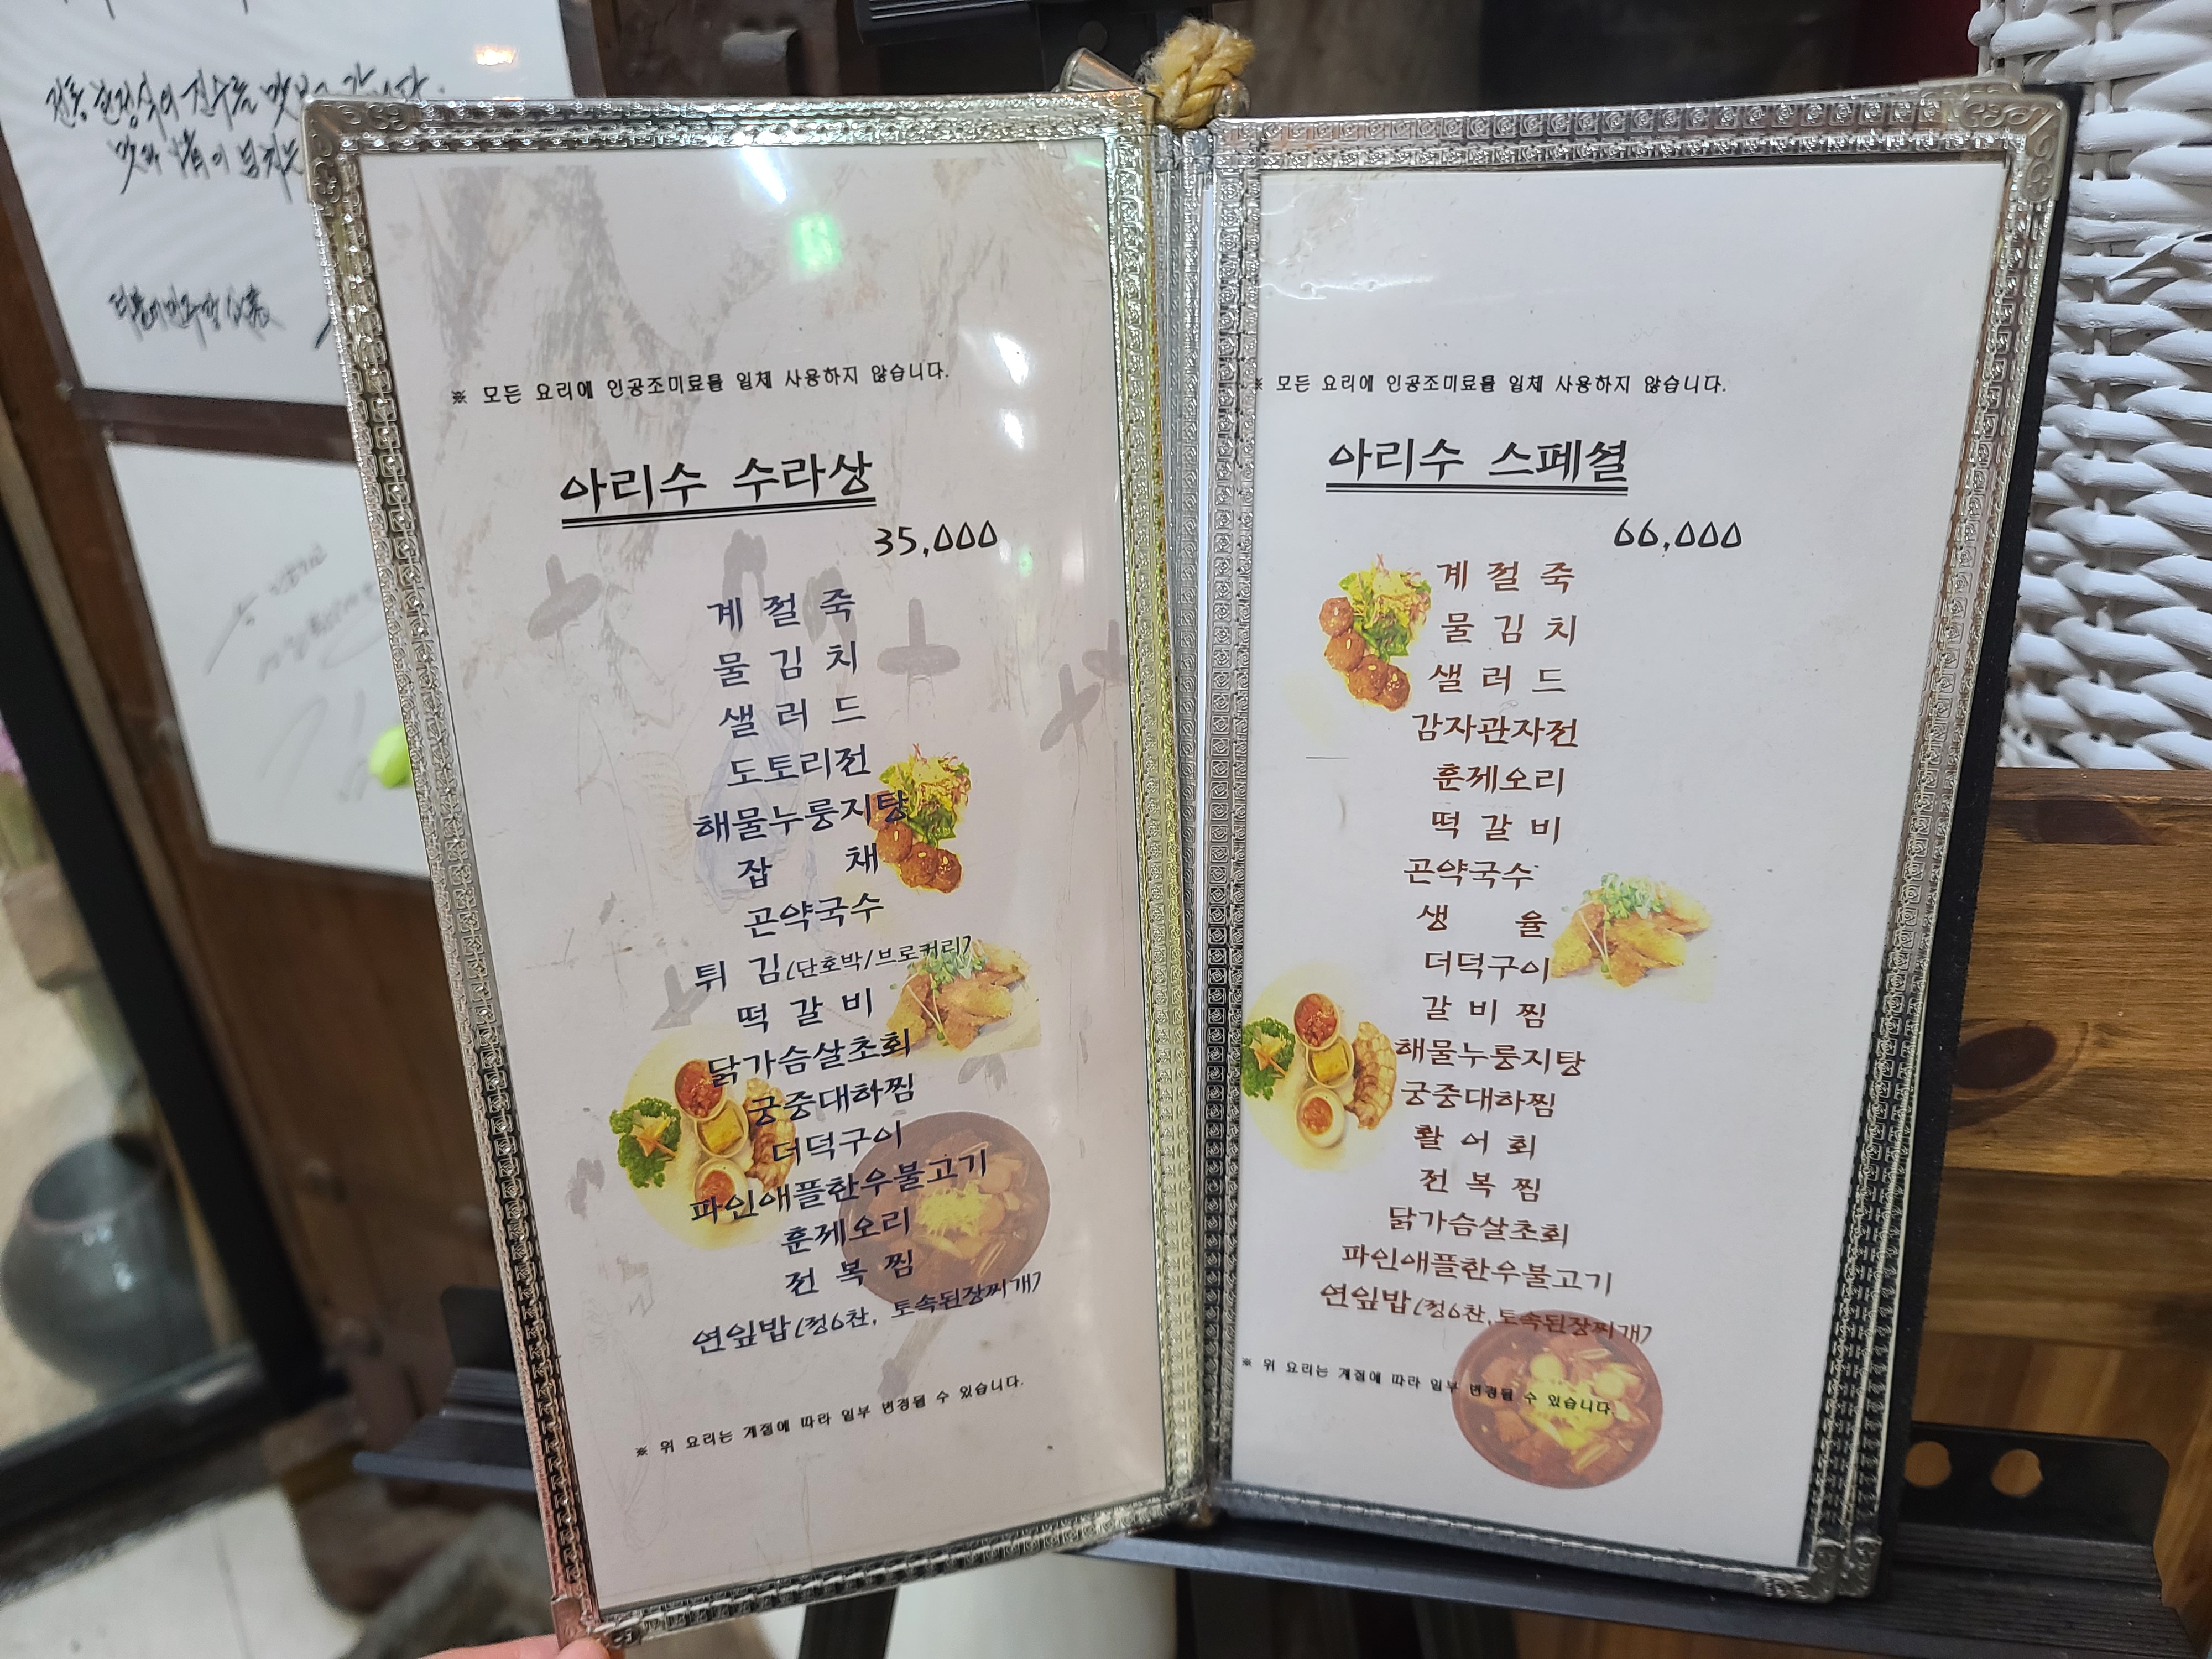 ※ 모든 요리에 인공조미료를 일체 사용하지 않습니다.
아리수 수라상
35,000
계 절 죽
물 김 치
샐 러 드
도토리전
해물누룽지탕
잡 채
곤약국수
튀 김(단호박/브로커리)
떡 갈 비
닭가슴살초회
궁중대하찜
더덕구이
파인애플한우불고기
훈제오리
전 복 찜
연잎밥(정6찬, 토속된장찌개)
※ 위 요리는 계절에 따라 일부 변경될 수 있습니다.
※ 모든 요리에 인공조미료를 일체 사용하지 않습니다.
아리수 스페셜
66,000
계 절 죽
물 김 치
샐 러 드
감자관자전
훈제오리
떡 갈 비
곤약국수
생 율
더덕구이
갈 비 찜
해물누룽지탕
궁중대하찜
활 어 회
전 복 찜
닭가슴살초회
파인애플한우불고기
연잎밥(정6찬, 토속된장찌개)
※ 위 요리는 계절에 따라 일부 변경될 수 있습니다.